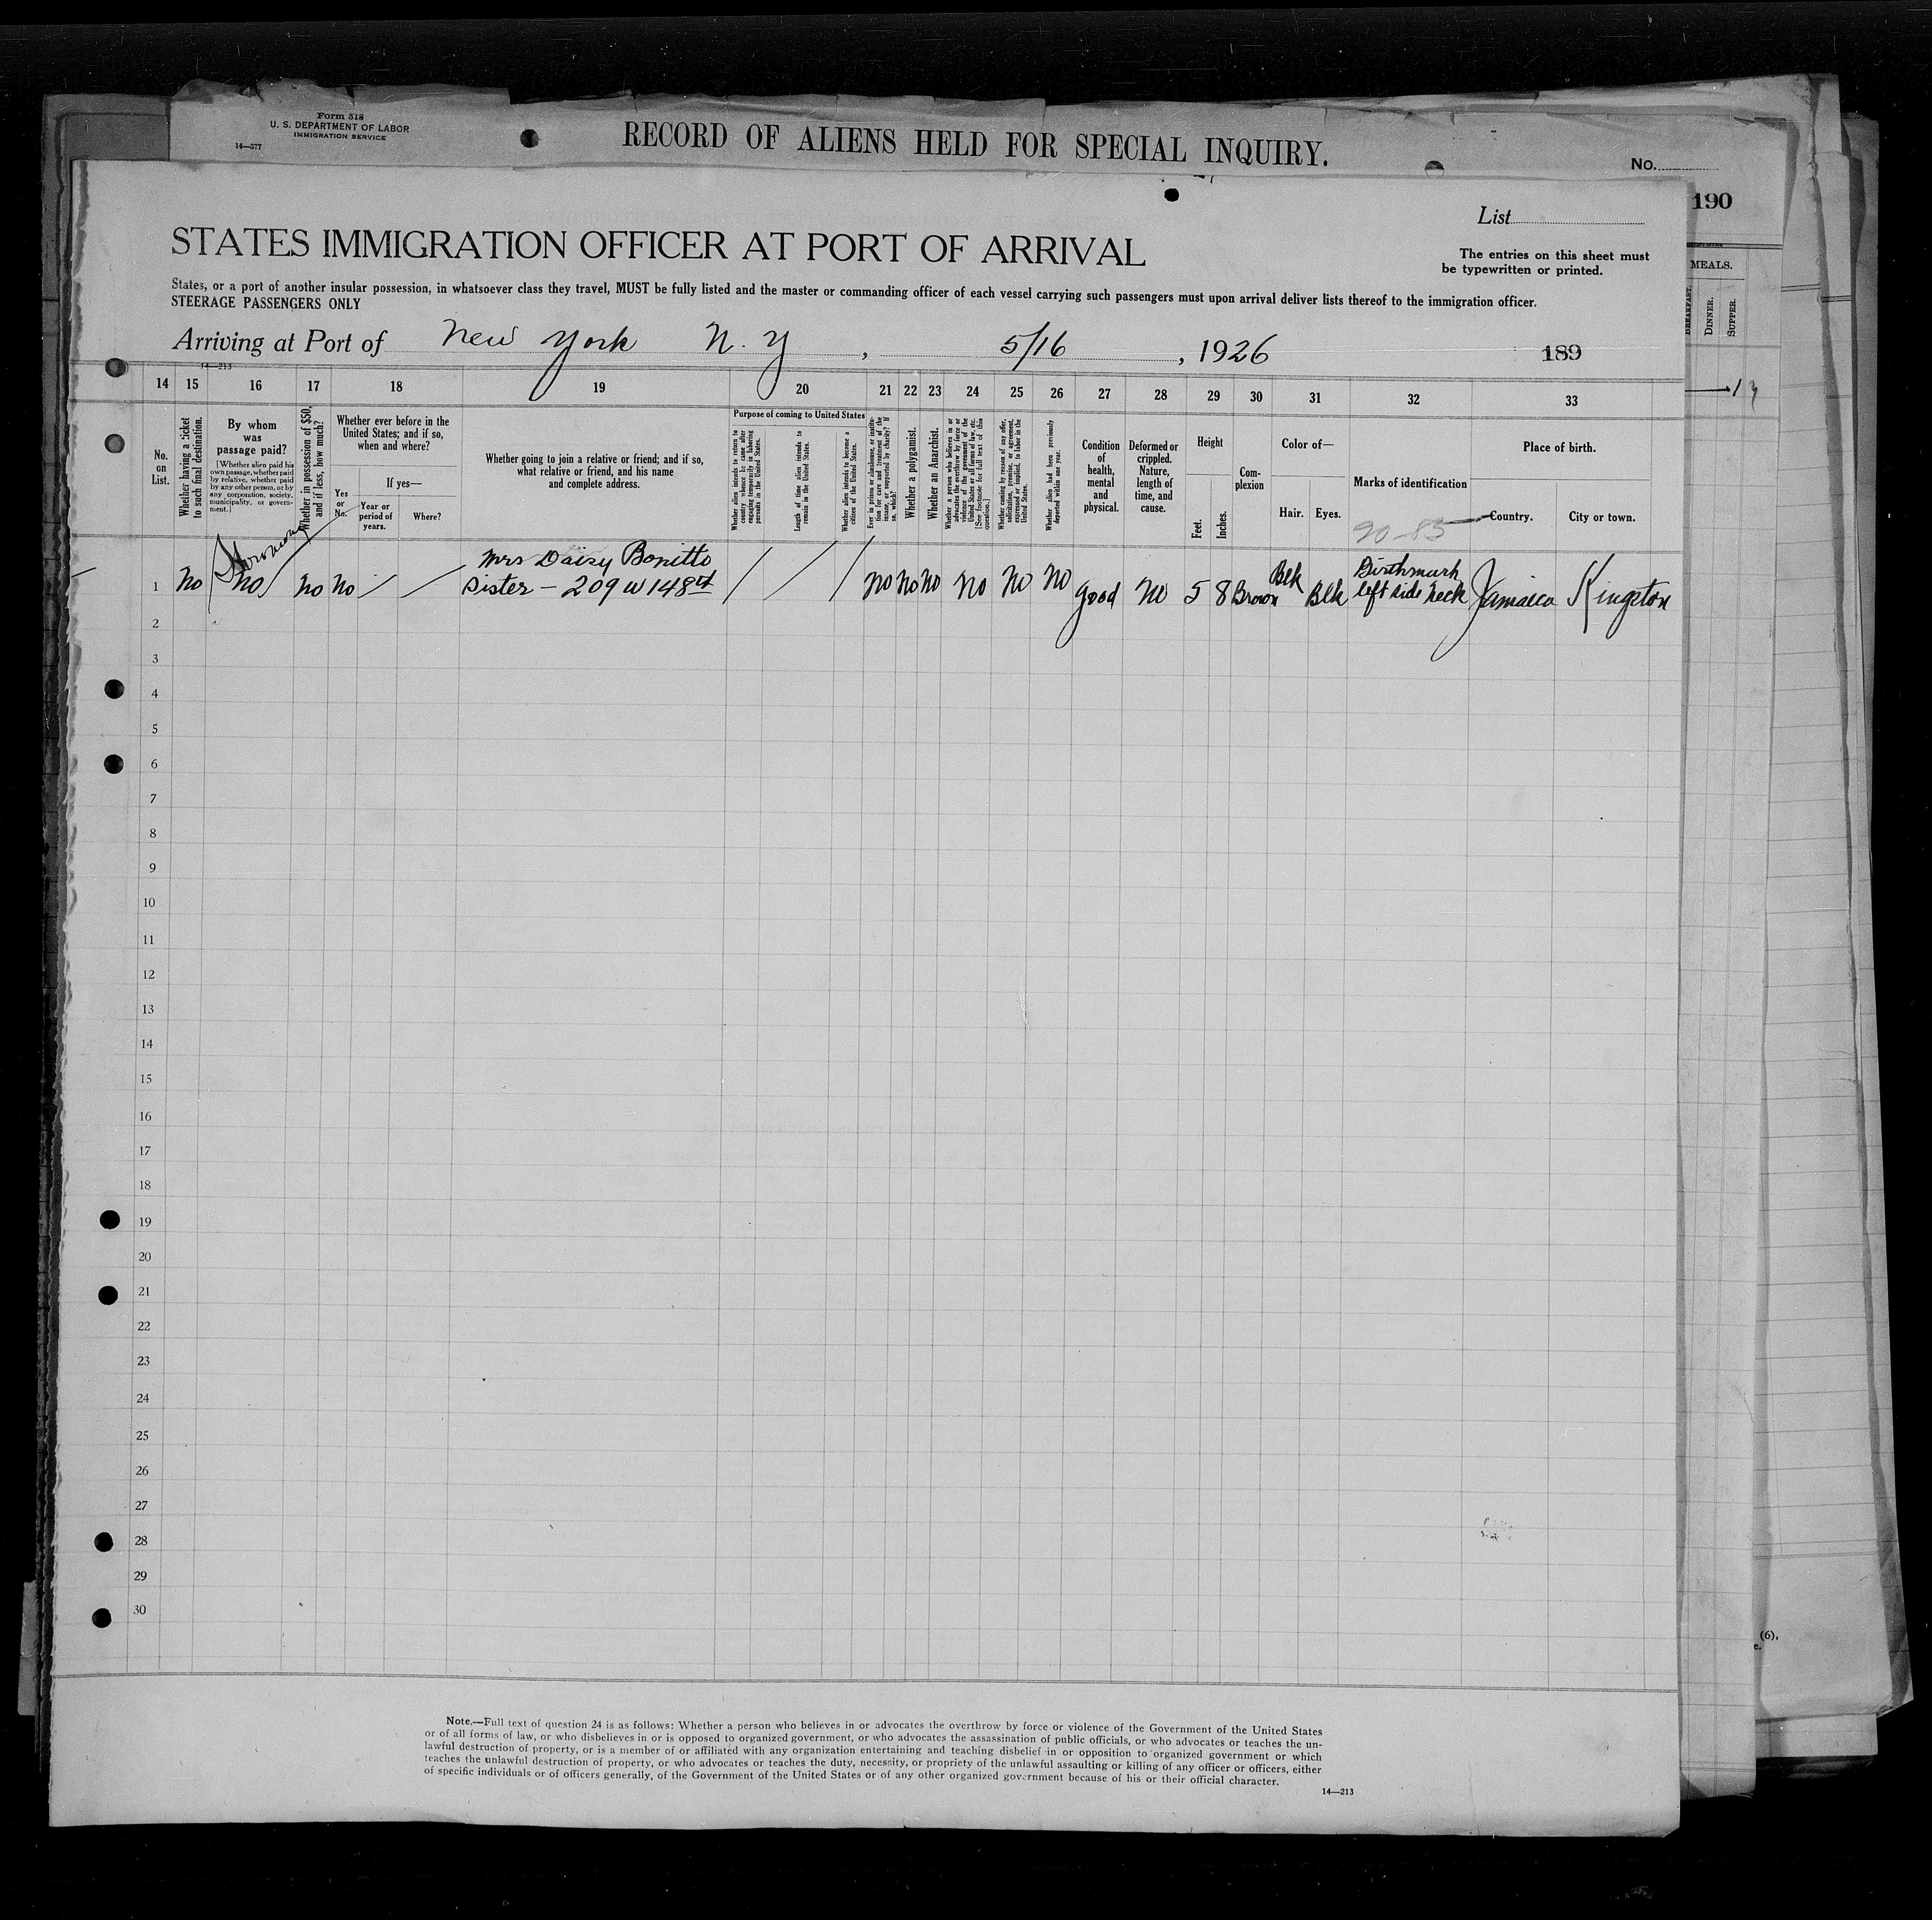 Form 518
U. S. DEPARTMENT OF LABOR
IMMIGRATION SERVICE
14—377
RECORD OF ALIENS HELD FOR SPECIAL INQUIRY.
No.
190
MEALS.
BREAKFAST.
DINNER.
SUPPER.
List
STATES IMMIGRATION OFFICER AT PORT OF ARRIVAL
The entries on this sheet must
be typewritten or printed.
States, or a port of another insular possession, in whatsoever class they travel, MUST be fully listed and the master or commanding officer of each vessel carrying such passengers must upon arrival deliver lists thereof to the immigration officer.
STEERAGE PASSENGERS ONLY
Arriving at Port of New York N. Y , 5/16 , 1926
189
14—213
14 15 16 17 18 19 20 21 22 23 24 25 26 27 28 29 30 31 32 33
No.
on
List.
Whether having a ticket
to such final destination.
By whom
was
passage paid?
[Whether alien paid his
own passage, whether paid
by relative, whether paid
by any other person, or by
any corporation, society,
municipality, or govern-
ment.]
Whether in possession of $50,
and if less, how much?
Whether ever before in the
United States; and if so,
when and where?
Yes
or
No.
If yes—
Year or
period of
years.
Where?
Whether going to join a relative or friend; and if so,
what relative or friend, and his name
and complete address.
Purpose of coming to United States
Whether alien intends to return to
country whence he came after
engaging temporarily in laboring
pursuits in the United States.
Length of time alien intends to
remain in the United States.
Whether alien intends to become a
citizen of the United States.
Ever in prison or almshouse, or institu-
tion for care and treatment of the
insane, or supported by charity? If
so, which?
Whether a polygamist.
Whether an Anarchist.
Whether a person who believes in or
advocates the overthrow by force or
violence of the government of the
United States or all forms of law, etc.
[See footnote for full text of this
question.]
Whether coming by reason of any offer,
solicitation, promise, or agreement,
expressed or implied, to labor in the
United States.
Whether alien had been previously
deported within one year.
Condition
of
health,
mental
and
physical.
Deformed or
crippled.
Nature,
length of
time, and
cause.
Height
Feet.
Inches.
Com-
plexion
Color of—
Hair.
Eyes.
Marks of identification
90-85
Place of birth.
Country.
City or town.
1 No No No No Mrs Daisy Bonitto
Sister - 209 W 148th
No No No No No No good No 5 8 Brown Blk Blk Birthmark
left side neck Jamaica Kingston
2
3
4
5
6
7
8
9
10
11
12
13
14
15
16
17
18
19
20
21
22
23
24
25
26
27
28
29
30
(6),
e.
Note.—Full text of question 24 is as follows: Whether a person who believes in or advocates the overthrow by force or violence of the Government of the United States
or of all forms of law, or who disbelieves in or is opposed to organized government, or who advocates the assassination of public officials, or who advocates or teaches the un-
lawful destruction of property, or is a member of or affiliated with any organization entertaining and teaching disbelief in or opposition to organized government or which
teaches the unlawful destruction of property, or who advocates or teaches the duty, necessity, or propriety of the unlawful assaulting or killing of any officer or officers, either
of specific individuals or of officers generally, of the Government of the United States or of any other organized government because of his or their official character.
14—213